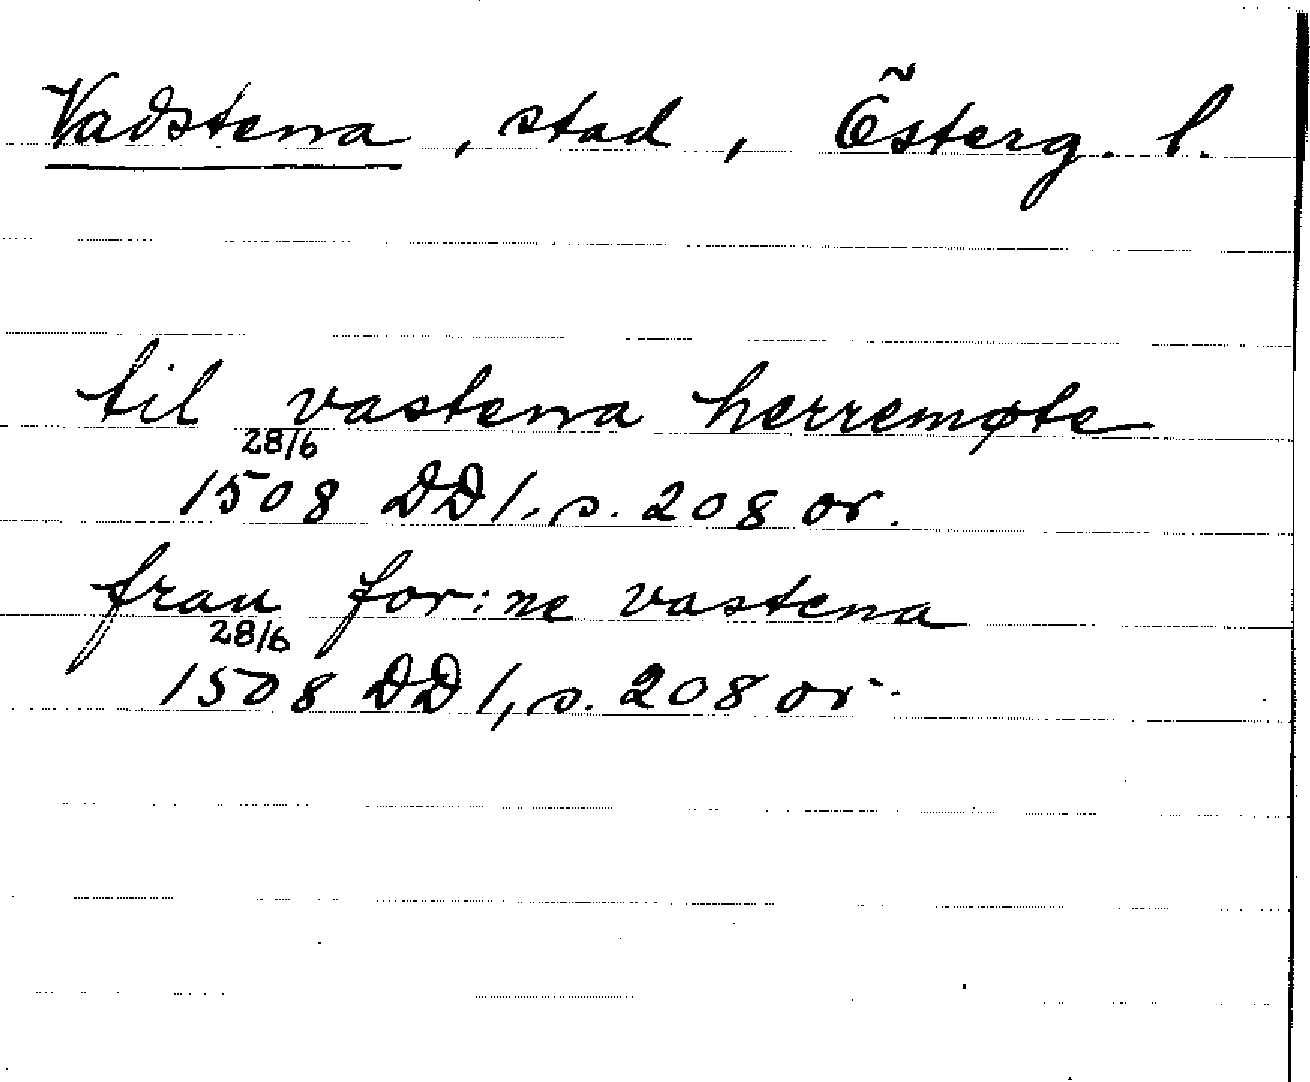 Vadstena, stad, Österg. l.
til vastena herremøte
28/6
1508 DD1, s. 208 or.
fran for:ne vastena
28/6
1508 DD1, s. 208 or.